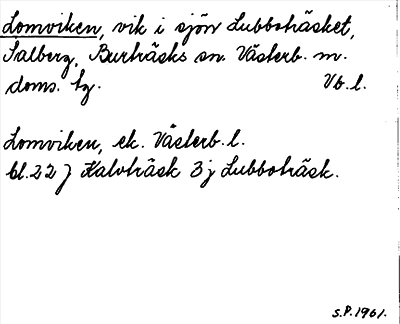 Lomviken, vik i sjön Lubboträsket,
Salberg, Burträsks sn. Västerb. m.
doms. tg. Vb. l.
Lomviken, ek. Västerb. l.
bl. 22 j Kalvträsk 3 j Lubboträsk.
S.P. 1961.